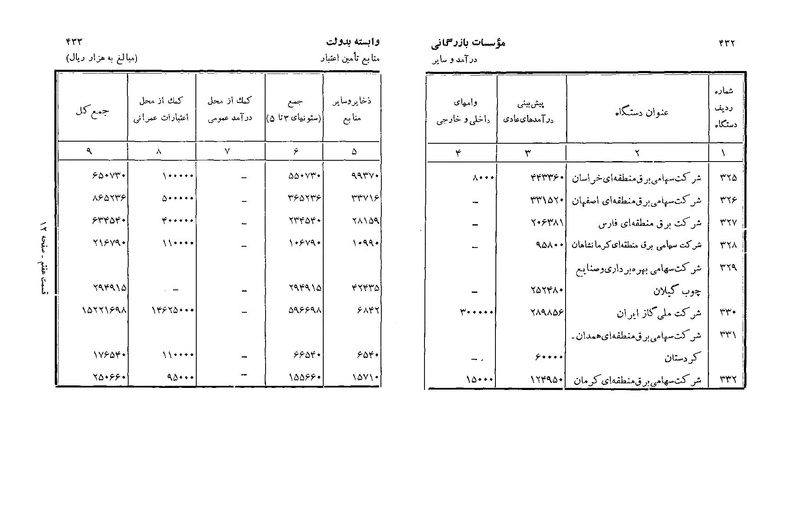 ۴۳۲
مؤسسات بازرگانی
درآمد و سایر
شماره ردیف دستگاه | عنوان دستگاه | پیش‌بینی درآمدهای‌عادی | وامهای داخلی و خارجی
۱ | ۲ | ۳ | ۴
۳۲۵ | شرکت‌سهامی‌برق‌منطقه‌ای‌خراسان | ۴۴۳۳۶۰ | ۸۰۰۰
۳۲۶ | شرکت‌سهامی‌برق‌منطقه‌ای اصفهان | ۳۳۱۵۲۰ | –
۳۲۷ | شرکت برق منطقه‌ای فارس | ۲۰۶۳۸۱ | –
۳۲۸ | شرکت سهامی برق منطقه‌ای‌کرمانشاهان | ۹۵۸۰۰ | –
۳۲۹ | شرکت‌سهامی بهره‌برداری‌وصنایع
چوب گیلان | ۲۵۲۴۸۰ | –
۳۳۰ | شرکت ملی گاز ایران | ۲۸۹۸۵۶ | ۳۰۰۰۰۰
۳۳۱ | شرکت‌سهامی‌برق‌منطقه‌ای‌همدان ـ
کردستان | ۶۰۰۰۰ | –
۳۳۲ | شرکت‌سهامی‌برق‌منطقه‌ای کرمان | ۱۲۴۹۵۰ | ۱۵۰۰۰
وابسته بدولت
۴۳۳
منابع تأمین اعتبار
(مبالغ به هزار ریال)
ذخایروسایر منابع | جمع (ستونهای ۳ تا ۵) | کمک از محل درآمد عمومی | کمک از محل اعتبارات عمرانی | جمع کل
۵ | ۶ | ۷ | ۸ | ۹
۹۹۳۷۰ | ۵۵۰۷۳۰ | – | ۱۰۰۰۰۰ | ۶۵۰۷۳۰
۳۳۷۱۶ | ۳۶۵۲۳۶ | – | ۵۰۰۰۰۰ | ۸۶۵۲۳۶
۲۸۱۵۹ | ۲۳۴۵۴۰ | – | ۴۰۰۰۰۰ | ۶۳۴۵۴۰
۱۰۹۹۰ | ۱۰۶۷۹۰ | – | ۱۱۰۰۰۰ | ۲۱۶۷۹۰
۴۲۴۳۵ | ۲۹۴۹۱۵ | – | – | ۲۹۴۹۱۵
۶۸۴۲ | ۵۹۶۶۹۸ | – | ۱۴۶۲۵۰۰۰ | ۱۵۲۲۱۶۹۸
۶۵۴۰ | ۶۶۵۴۰ | – | ۱۱۰۰۰۰ | ۱۷۶۵۴۰
۱۵۷۱۰ | ۱۵۵۶۶۰ | – | ۹۵۰۰۰ | ۲۵۰۶۶۰
قسمت هفتم ـ صفحه ۱۲